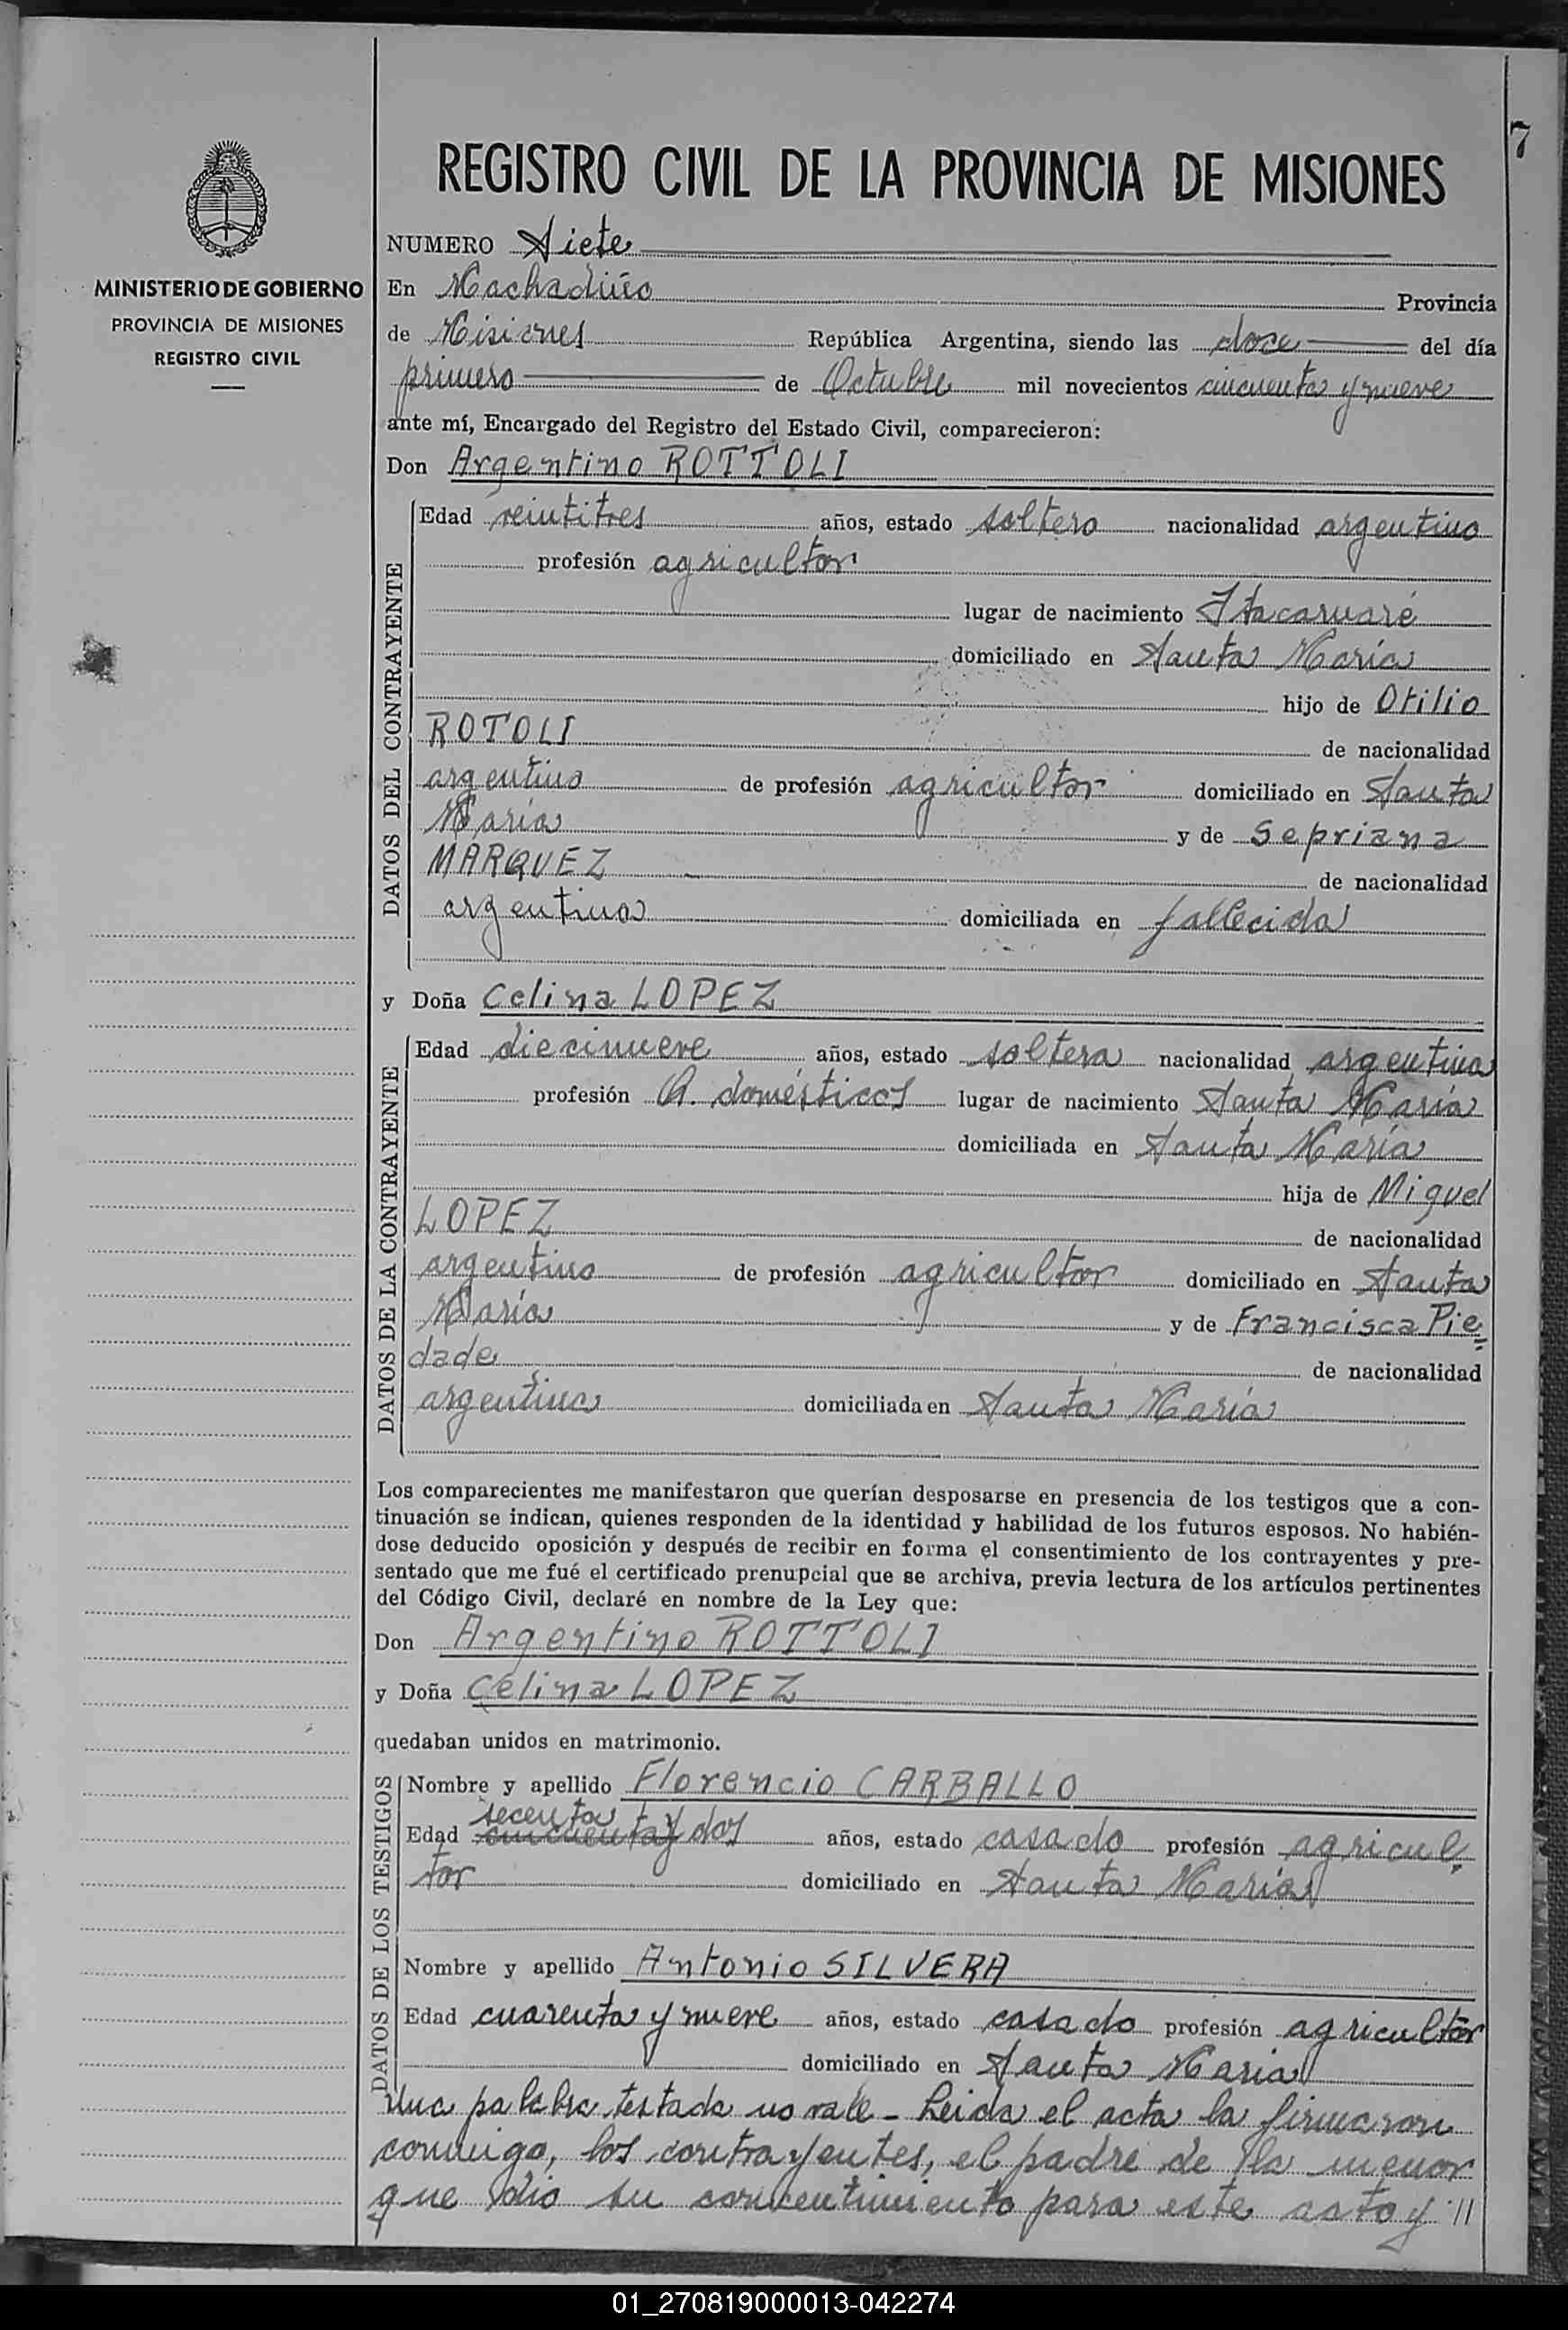 7
REGISTRO CIVIL DE LA PROVINCIA DE MISIONES
MINISTERIO DE GOBIERNO
PROVINCIA DE MISIONES
REGISTRO CIVIL
NUMERO Siete
En Machadiño Provincia
de Misiones República Argentina, siendo las doce del día
primero de Octubre mil novecientos cincuenta y nueve
ante mí, Encargado del Registro del Estado Civil, comparecieron:
Don Argentino ROTTOLI
DATOS DEL CONTRAYENTE
Edad veintitres años, estado soltero nacionalidad argentino
profesión agricultor
lugar de nacimiento Itacaruaré
domiciliado en Santa María
hijo de Otilio
ROTOLI de nacionalidad
argentino de profesión agricultor domiciliado en Santa
María y de Sepriana
MARQUEZ de nacionalidad
argentina domiciliada en fallecida
y Doña Celina LOPEZ
DATOS DE LA CONTRAYENTE
Edad diecinueve años, estado soltera nacionalidad argentina
profesión Q. domésticos lugar de nacimiento Santa María
domiciliada en Santa María
hija de Miguel
LOPEZ de nacionalidad
argentino de profesión agricultor domiciliado en Santa
María y de Francisca Pie=
dade de nacionalidad
argentina domiciliada en Santa María
Los comparecientes me manifestaron que querían desposarse en presencia de los testigos que a con-
tinuación se indican, quienes responden de la identidad y habilidad de los futuros esposos. No habién-
dose deducido oposición y después de recibir en forma el consentimiento de los contrayentes y pre-
sentado que me fué el certificado prenupcial que se archiva, previa lectura de los artículos pertinentes
del Código Civil, declaré en nombre de la Ley que:
Don Argentino ROTTOLI
y Doña Celina LOPEZ
quedaban unidos en matrimonio.
DATOS DE LOS TESTIGOS
Nombre y apellido Florencio CARBALLO
secenta
Edad cincuenta y dos años, estado casado profesión agricul-
tor domiciliado en Santa María
Nombre y apellido Antonio SILVERA
Edad cuarenta y nueve años, estado casado profesión agricultor
domiciliado en Santa María
Una palabra testada no vale - Leida el acta la firmaron
conmigo, los contrayentes, el padre de la menor
que dio su concentimiento para este acto y //
01_270819000013-042274